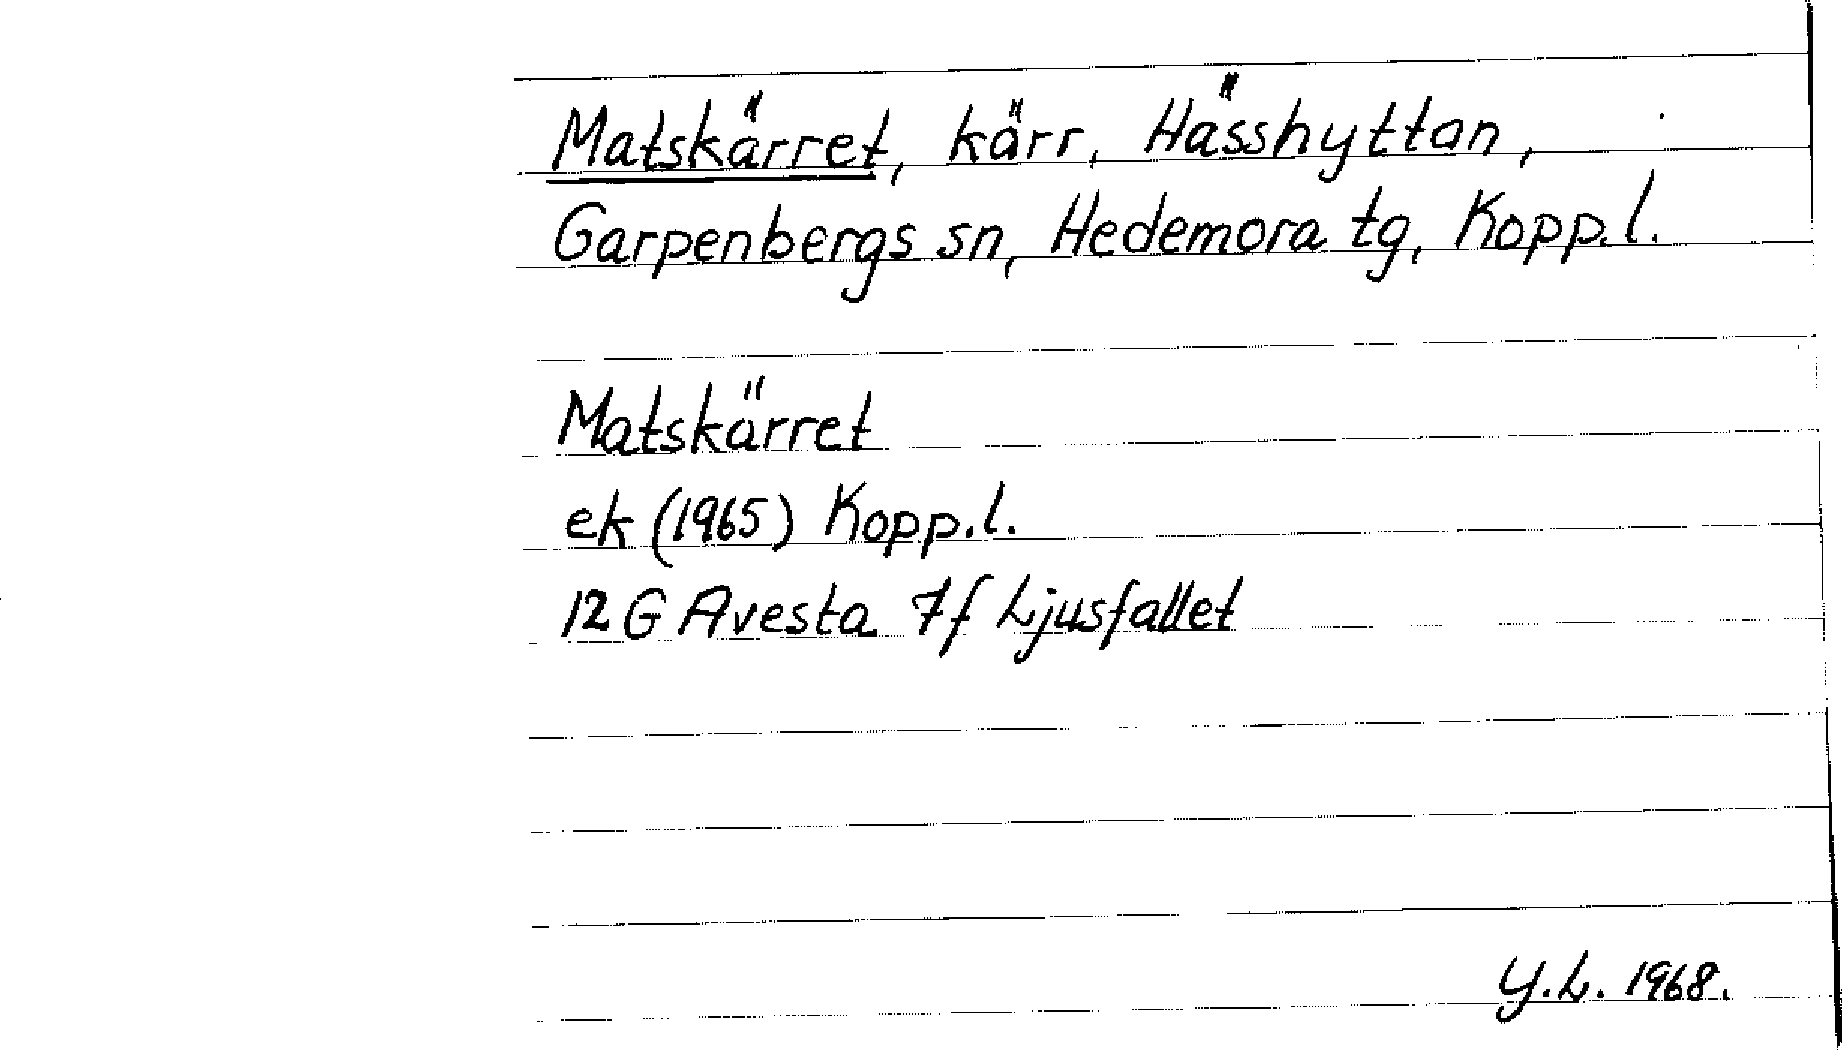 Matskärret, kärr, Hässhyttan,
Garpenbergs sn, Hedemora tg, Kopp.l.
Matskärret
ek (1965) Kopp.l.
12 G Avesta 7f Ljusfallet
Y.L. 1968.